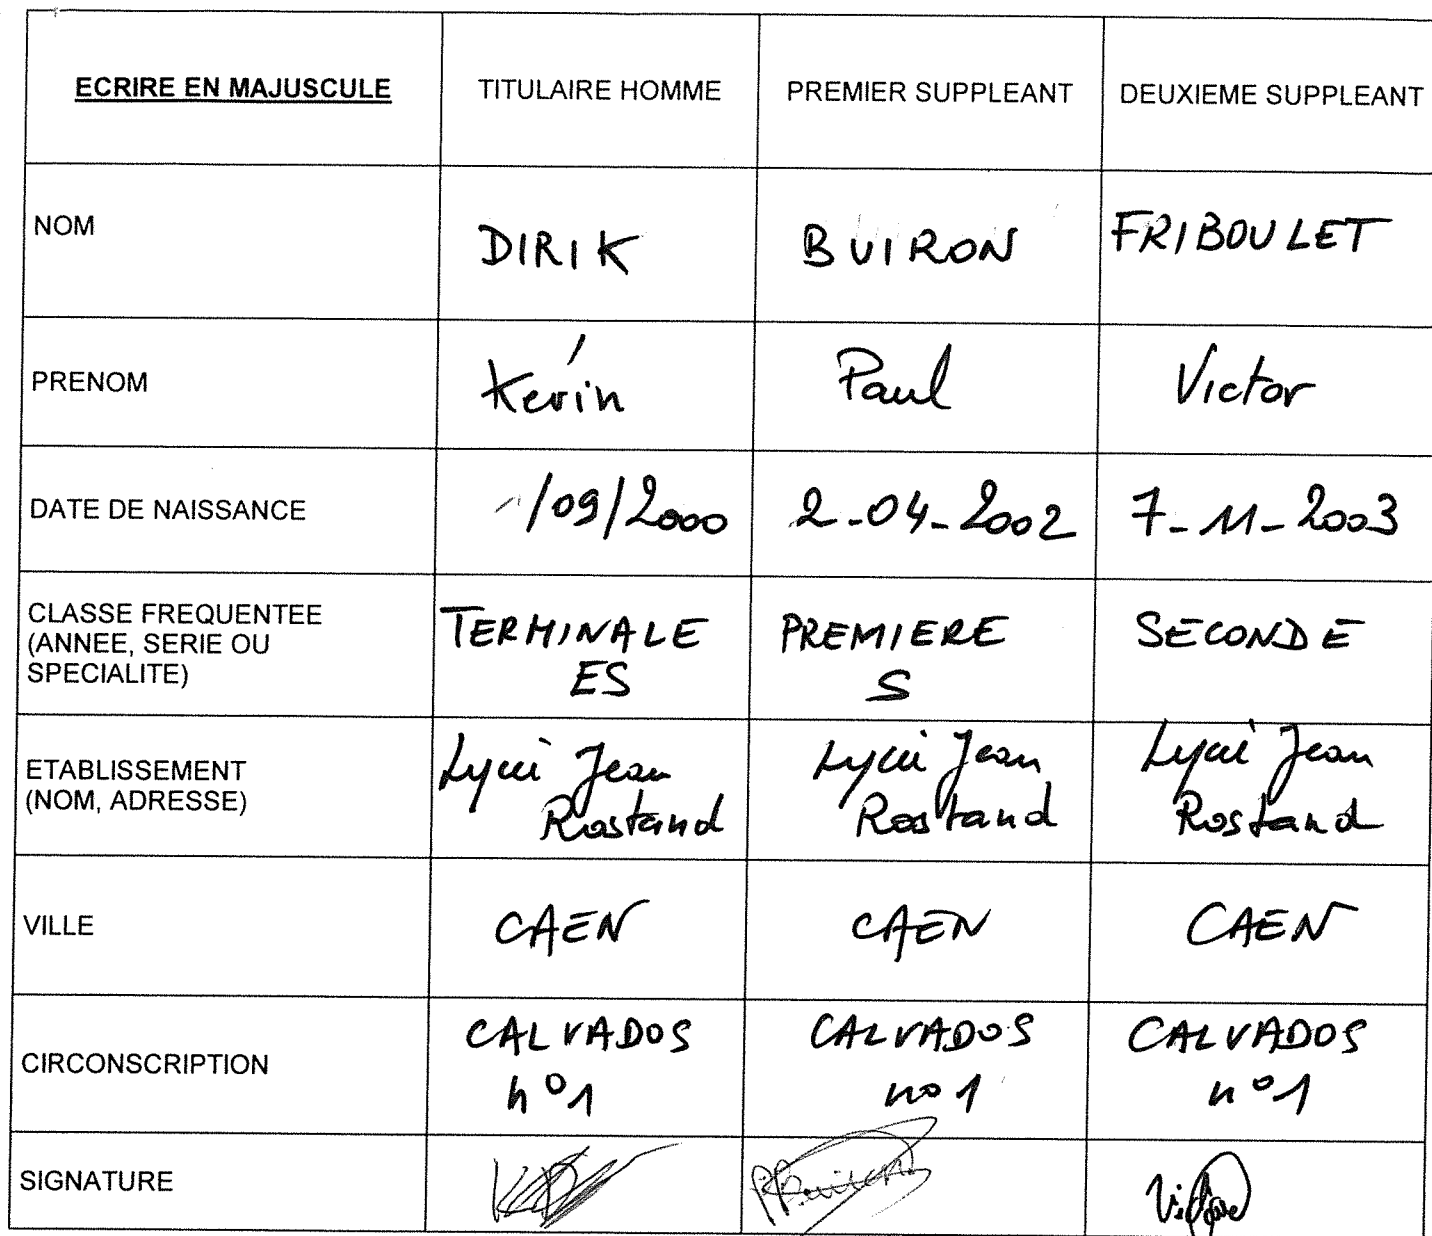 ECRIRE EN MAJUSCULE TITULAIRE HOMME PREMIER SUPPLEANT DEUXIEME SUPPLEANT
NOM DIRIK BUIRON FRIBOULET
PRENOM Kévin Paul Victor
DATE DE NAISSANCE /09/2000 2-04-2002 7-11-2003
CLASSE FREQUENTEE
(ANNEE, SERIE OU
SPECIALITE)
TERMINALE
ES
PREMIERE
S
SECONDE
ETABLISSEMENT
(NOM, ADRESSE)
Lycée Jean
Rostand
Lycée Jean
Rostand
Lycée Jean
Rostand
VILLE CAEN CAEN CAEN
CIRCONSCRIPTION
CALVADOS
n°1
CALVADOS
no 1
CALVADOS
n°1
SIGNATURE